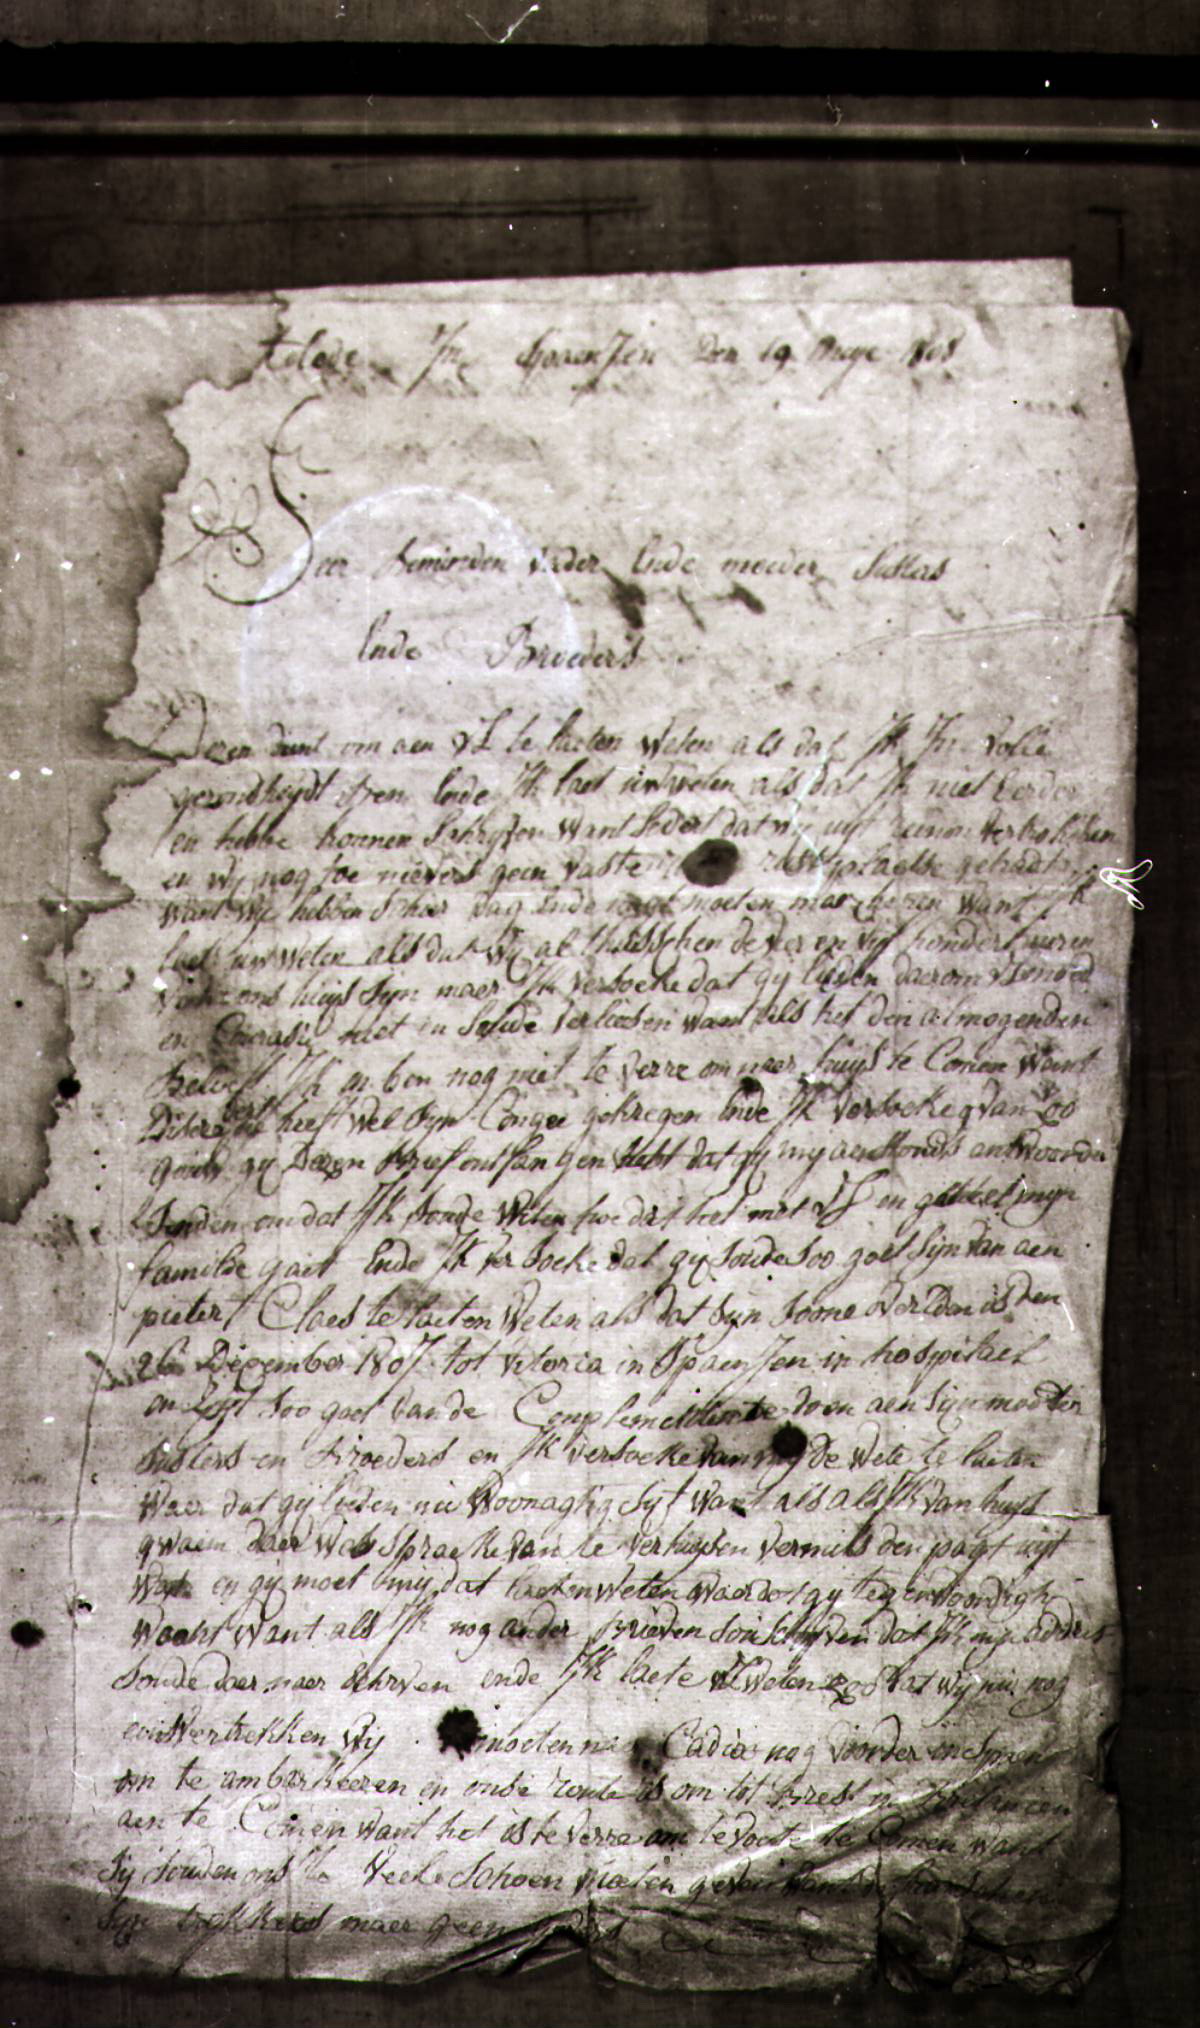 tolede In Spaenjen Den 19 Meye 1808
Seer Beminden vader Ende moeder Susters
Ende Broeders
Dezen dient om aen UL te laeten weten als dat Ik In volle
gezondheydt ben Ende Ik laet uw weten als dat Ik niet Eerder
en hebbe konnen Schryven want sedert dat wy uyt vertrokken
en wy nog toe nievers geen vaste rustplaetse gehadt
want wy hebben schier dag Ende nagt moeten marcheren want Ik
laet uw weten als dat wy al thusschen de vier en vyf hondert uuren
van ons huys Syn maer Ik versoeke dat gy lieden daerom U moed
en Couragie niet en Soude verliesen want als het den almogenden
belieft Ik en ben nog niet te verre om naer huys te Comen want
heeft wel Syn Congee gekregen Ende Ik versoeke van zoo
gouw gy Dezen Brief ontfangen hebt dat gy my aenstonds antwoorde
Senden omdat Ik soude Weten hoe dat het met UL en geheel myn
familde gaet Ende Ik versoeke dat gy soude soo goet Syn van aen
pieter Claes te laeten Weten als dat Syn soone overleden is den
26 Dezember 1807 tot vitoria in Spaenjen in hospitael
en zyt soo goet van de Complementen te doen aen Syn moeder
susters en broeders en Ik versoeke van my de wete te laeten
waer dat gy lieden nu Woonagtig Syt want als als Ik van huys
gwaem daer was spraeke van te verhuysen vermits den pagt uyt
Was en gy moet my dat laeten weten waer dat gy tegenwoordigh
woont want als Ik nog ander brieven sou schryven dat Ik myn addres
soude daer naer schryven ende Ik laete UL weten zoo dat wy nu nog
vertrekken wy moeten na Cadix nog voorder in Spaenjen
om te ambarkeeren en onse route is om tot brest in
aen te Comen want het is te verre om te voete te Comen want
Sy souden ons te veele Schoen moeten geven want
Syn trekkers maer geen